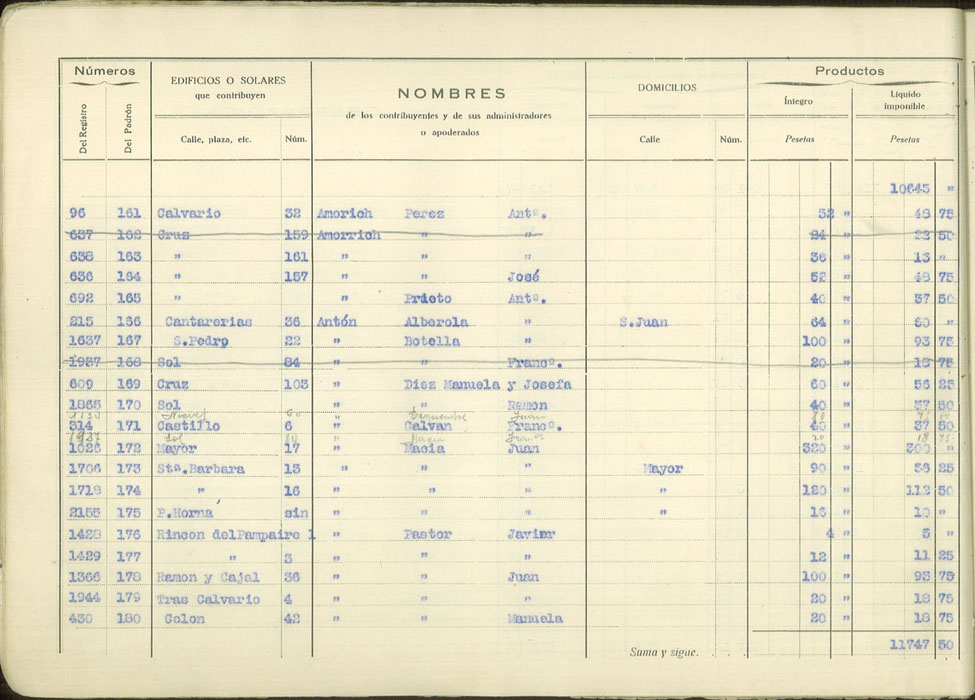 Números
EDIFICIOS O SOLARES
que contribuyen
NOMBRES
de los contribuyentes y de sus administradores
o apoderados
DOMICILIOS
Productos
Íntegro
Líquido
imponible
Del Registro
Del Padrón
Calle, plaza, etc.
Núm.
Calle
Núm.
Pesetas
Pesetas
10645 "
96 161 Calvario 32 Amorich Perez Antº. 52 " 48 75
637 162 Cruz 159 Amorrich " " 24 " 22 50
638 163 " 161 " " " 36 " "
636 164 " 157 " " José 52 " 48 75
692 165 " " Prieto Antº. 40 " 37 50
215 166 Cantarerias 36 Antón Alberola " S.Juan 64 " 60 "
1637 167 S.Pedro 22 " Botella " 100 " 93 75
1937 168 Sol 84 " " Francº. 20 " 18 75
609 169 Cruz 103 " Diez Manuela y Josefa 60 " 56 25
1865 170 Sol " Ramon 40 " 37 50
314 171 Castillo 6 " Galvan Francº. 40 " 37 50
1937 Sol 84 " Macia Franco 20 18 75
1026 172 Mayor 17 " Macia Juan 320 " 300 "
1706 173 Stª.Barbara 13 " " " Mayor 90 " 25
1718 174 " 16 " " " " 120 " 112 50
2155 175 P.Horna sin " " " " 16 " "
1428 176 Rincon delPampaire 1 " Pastor Javier 4 " 3 "
1429 177 " 3 " " " 12 " 11 25
1366 178 Ramon y Cajal 36 " " Juan 100 " 93 75
1944 179 Tras Calvario 4 " " " 20 " 18 75
430 180 Colon 42 " " Manuela 20 " 18 75
Suma y sigue. 11747 50